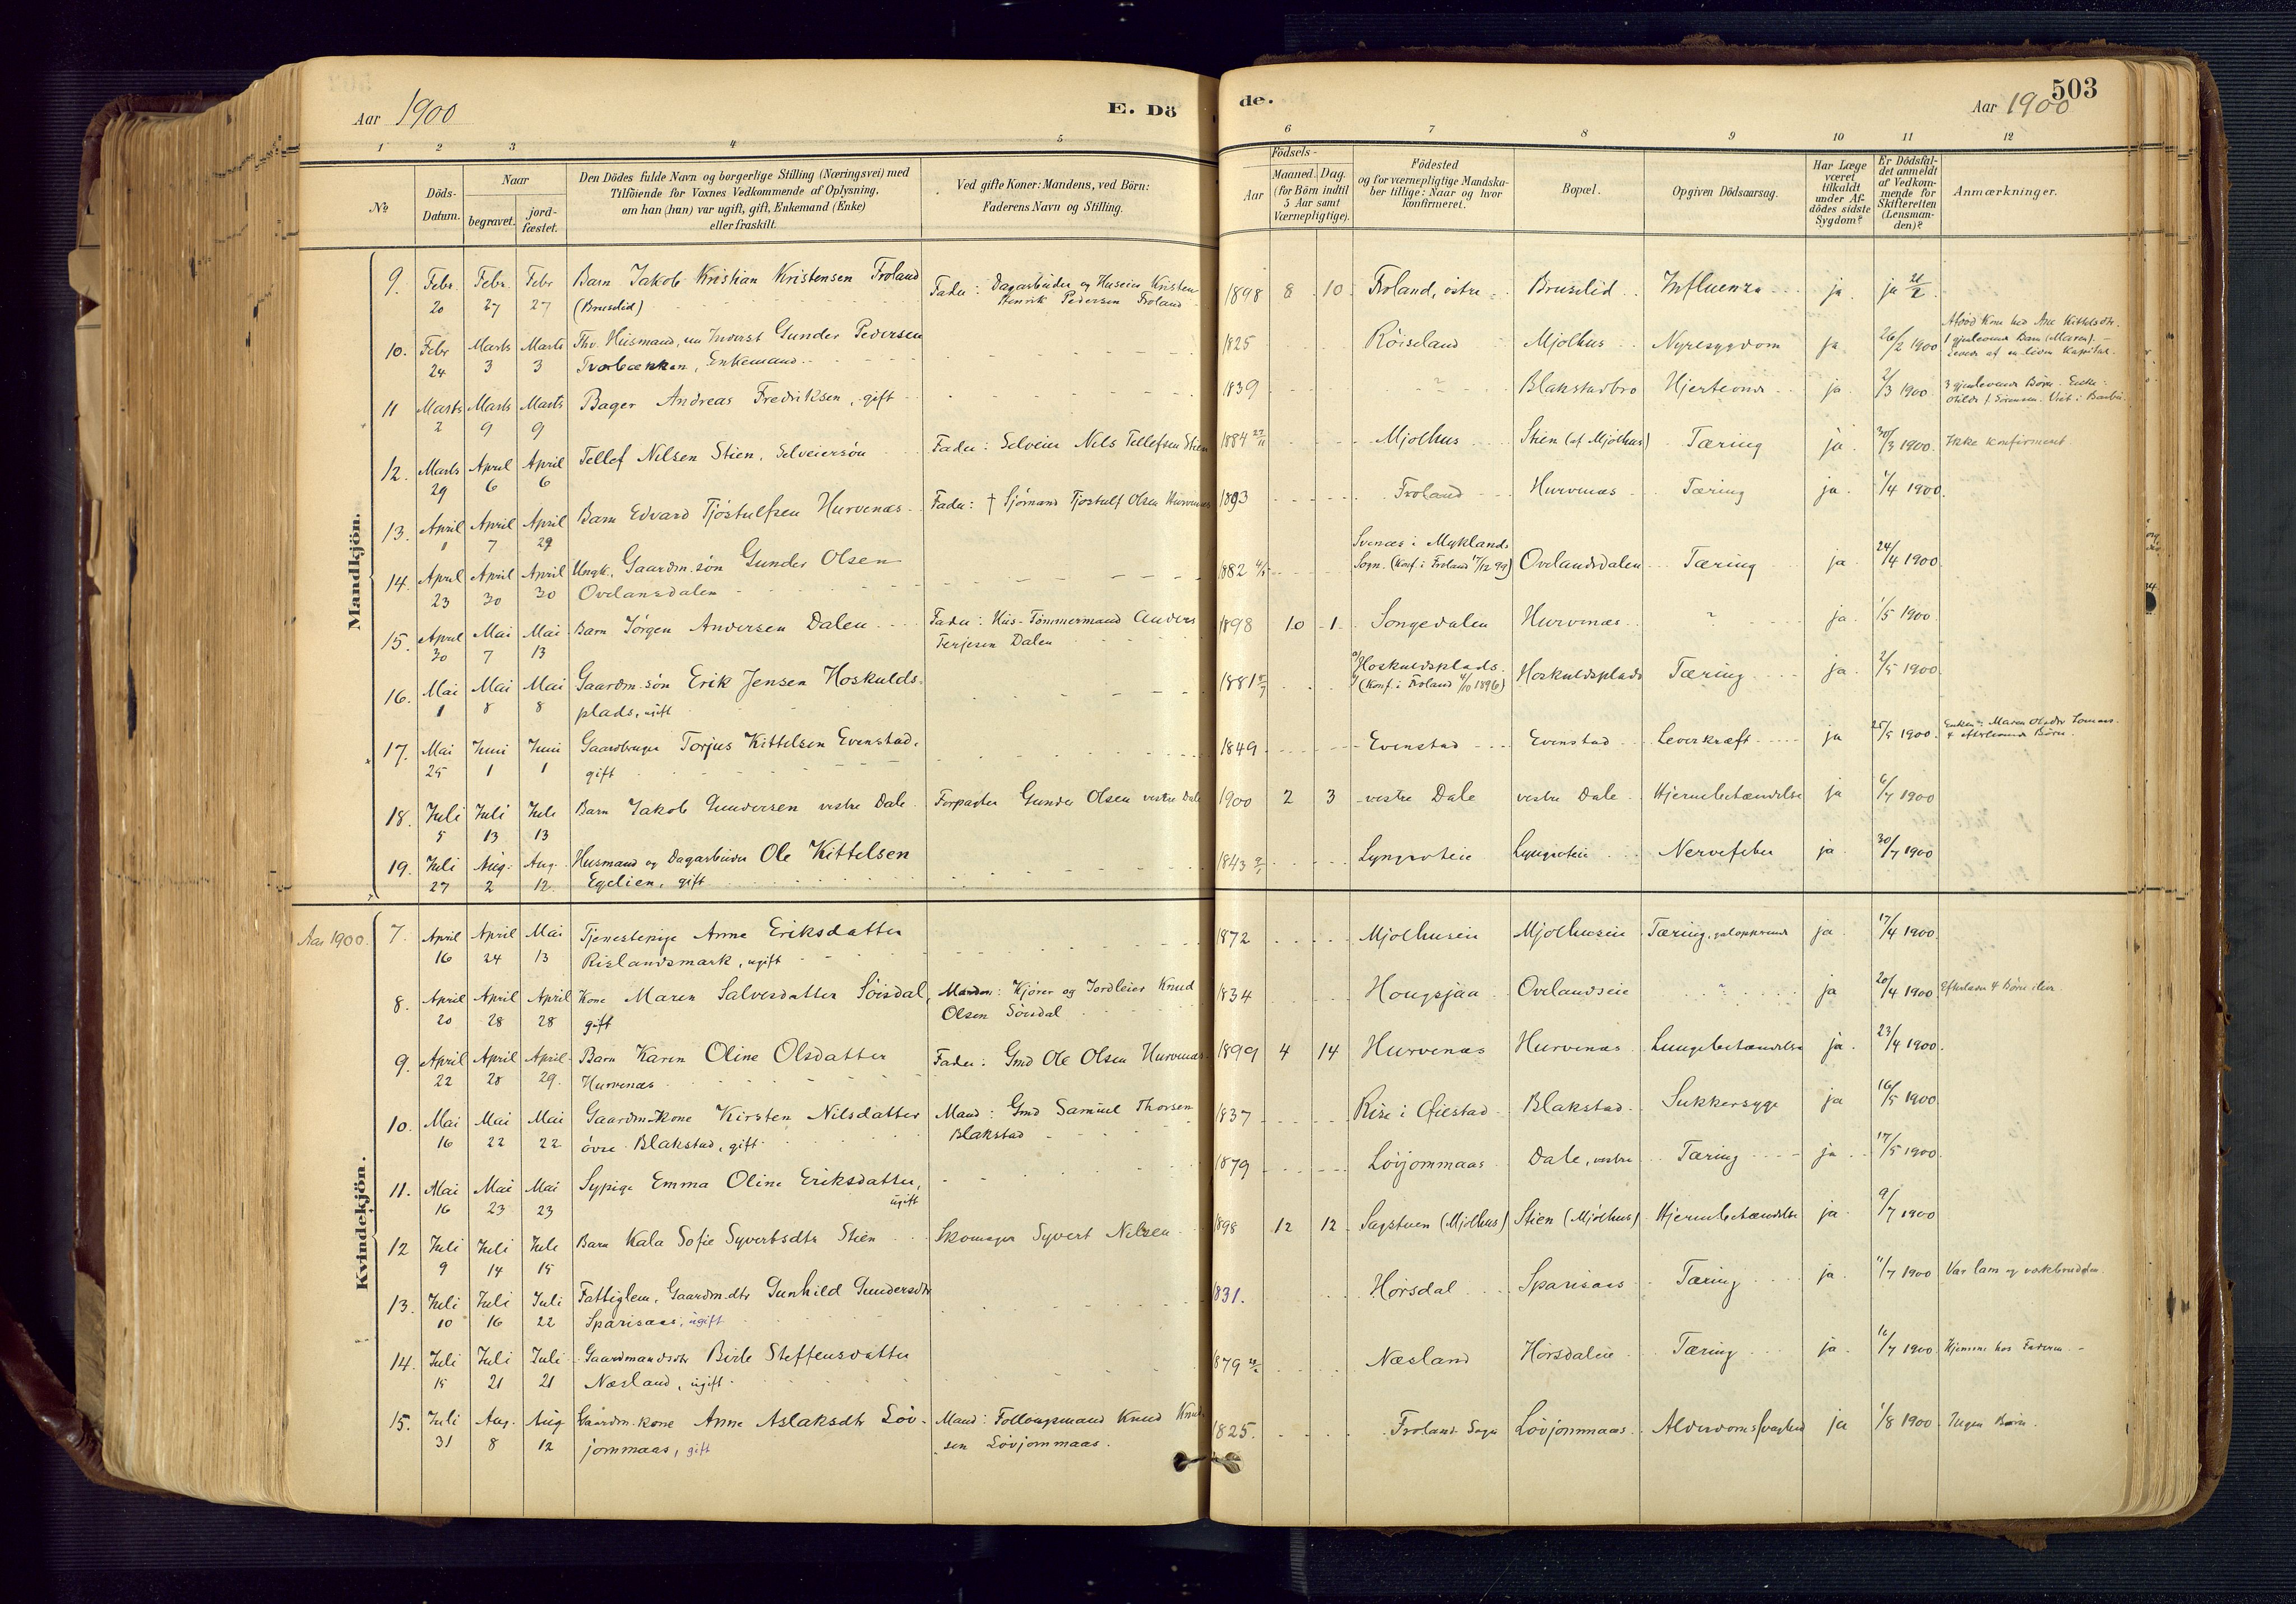 Aar 1900
E. Dö
de.
503
Aar 1900
1 2 3 4 5 6 7 8 9 10 11 12
No
Döds-Datum.
Naar
begravet.
jord-fæstet.
Den Dödes fulde Navn og borgerlige Stilling (Næringsvei) med
Tilföiende for Voxnes Vedkommende af Oplysning,
om han (hun) var ugift, gift, Enkemand (Enke)
eller fraskilt.
Ved gifte Koner: Mandens, ved Börn:
Faderens Navn og Stilling.
Födsels-
Aar
Maaned. Dag.
(for Börn indtil
5 Aar samt
Værnepligtige).
Födested
og for værnepligtige Mandska-
ber tillige: Naar og hvor
konfirmeret.
Bopæl.
Opgiven Dödsaarsag.
Har Læge
været
tilkaldt
under Af-
dödes sidste
Sygdom?
Er Dödsfal-
det anmeldt
af Vedkom-
mende for
Skifteretten
(Lensman-
den)?
Anmærkninger.
Mandkjön.
9. Febr. 20 Febr. 27 Febr 27 Barn Jakob Kristian Kristensen Froland
(Bruselid)
Fader: Dagarbeider og Huseier Kristen
Henrik Pedersen Froland
1898 8 10 Froland, östre Bruselid Influenza ja ja 21/2
10. Febr 24 Marts 3 Marts 3 Fhv. Husmand, nu Inderst Gunder Pedersen
Tvorbækken, Enkemand
1825 Röiseland Mjolhus Nyresygdom ja 26/2 1900
1 gjenlevende Barn (Maren).
Levede af en liden Kapital.
11 Marts 2 Marts 9 Marts 9 Bager Andreas Fredriksen, gift
1839 ? Blakstadbro Hjerteonde ja 2/3 1900 3 gjenlevende Börn. Enke:
12. Marts 29 April 6 April 6 Tellef Nilsen Stien, Selveiersön
Fader: Selveier Nils Tellefsen Stien
1884 27/11 Mjolhus Stien (af Mjolhus) Tæring ja 30/3 1900. Ikke konfirmeret
13. April 1 April 7 April 29 Barn Edvard Tjöstulfsen Hurvenæs
Fader: † Sjömand Tjöstulf Olsen Hurvenæs
1893 Froland Hurvenæs Tæring ja. 1/4 1900.
14. April 23 April 30 April 30 Ungk., Gaardm.sön Gunder Olsen
Ovelandsdalen
1882 Svenæs i Myklands
Sogn. (Konf. i Froland 17/12 99) Ovelandsdalen Tæring ja 24/4 1900
15. April 30 Mai 7 Mai 13 Barn Jörgen Andersen Dalen
Fader: Hus-Tömmermand Anders
Terjesen Dalen
1898 10 1 Songedalen Hurvenæs ? ja. 1/5 1900
16. Mai 1 Mai 8 Mai 8 Gaardm.sön Erik Jensen Hoskulds-
plads, ugift
1881 Hoskuldsplads.
(Konf. i Froland 4/10 1896) Hoskuldsplads Tæring ja. 2/5 1900
17. Mai 25 Juni 1 Juni 1 Gaardbruger Torjus Kittelsen Evenstad,
gift
1849 Evenstad Evenstad Leverkræft ja 25/5 1900. Enken: Maren
4 efterlevende Börn.
18. Juli 5 Juli 13 Juli 13 Barn Jakob Gundersen vestre Dale
Forpagter Gunder Olsen vestre Dale
1900 2 3 vestre Dale vestre Dale Hjernebetændelse ja 6/7 1900
19. Juli 27 Aug. 2 Aug. 12. Husmand og Dagarbeider Ole Kittelsen
Egelien, gift
1843 Lyngroteie Lyngroteie Nervefeber ja 30/7 1900
Aar 1900.
Kvindekjön.
7. April 16 April 24 Mai 13 Tjenestepige Anne Eriksdatter
Rislandsmark, ugift
1872 Mjolhuseie Mjolhuseie Tæring, galopperende ja 17/4 1900.
8. April 20 April 28 April 28 Kone Maren Salvesdatter Söisdal,
gift
Manden: Kjörer og Jordleier Knud
Olsen Söisdal
1834 Hougsjaa Ovelandseie ? ja 20/4 1900. Efterlader 4 Börn
9. April 22 April 28 April 29. Barn Karen Oline Olsdatter
Hurvenæs
Fader: Gmd Ole Olsen Hurvenæs
1899 4 14 Hurvenæs Hurvenæs Lungebetændelse ja. 23/4 1900.
10. Mai 16 Mai 22 Mai 22 Gaardm-kone Kirsten Nilsdatter
övre Blakstad, gift
Mand: Gmd Samuel Thorsen
Blakstad
1837 Rise i Öiestad Blakstad Sukkersyge ja 16/5 1900.
11. Mai 16 Mai 23 Mai 23 Sypige Emma Oline Eriksdatter,
ugift
1879 Lövjommaas Dale, vestre Tæring ja 17/5 1900.
12 Juli 9 Juli 14 Juli 15 Barn Kala Sofie Syvertsdtr Stien
Skomager Syvert Nilsen
1898 12 12 Sagstuen (Mjolhus) Stien (Mjölhus) Hjernebetændelse ja. 9/7 1900
13. Juli 10 Juli 16 Juli 22 Fattiglem, Gaardm.dtr Gunhild Gundersdtr
Sparisaas, ugift
1831. Hörsdal Sparisaas Tæring ja. 11/7 1900 Var lam og
14. Juli 15 Juli 21 Juli 21 Gaardmandsdtr Birte Steffensdatter
Næsland, ugift
1879 Næsland Hörsdaleie Tæring ja. 16/7 1900. Hjemme hos Faderen
15. Juli 31 Aug. 8 Aug 12 Gaardm.kone Anne Aslaksdtr Löv-
jommaas, gift
Mand: Föllougsmand Knud Knud-
sen Lövjommaas.
1825. Froland Sogn Lövjommaas. Alderdomssvaghed ja 1/8 1900. Ingen Börn.